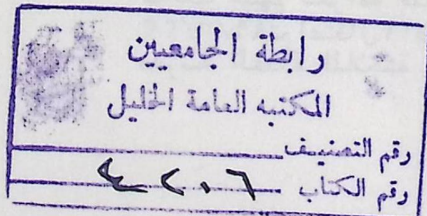 رابطة الجامعيين
المكتبه العامة الخليل
رقم التصنيف
رقم الكتاب ٤٢٠٦